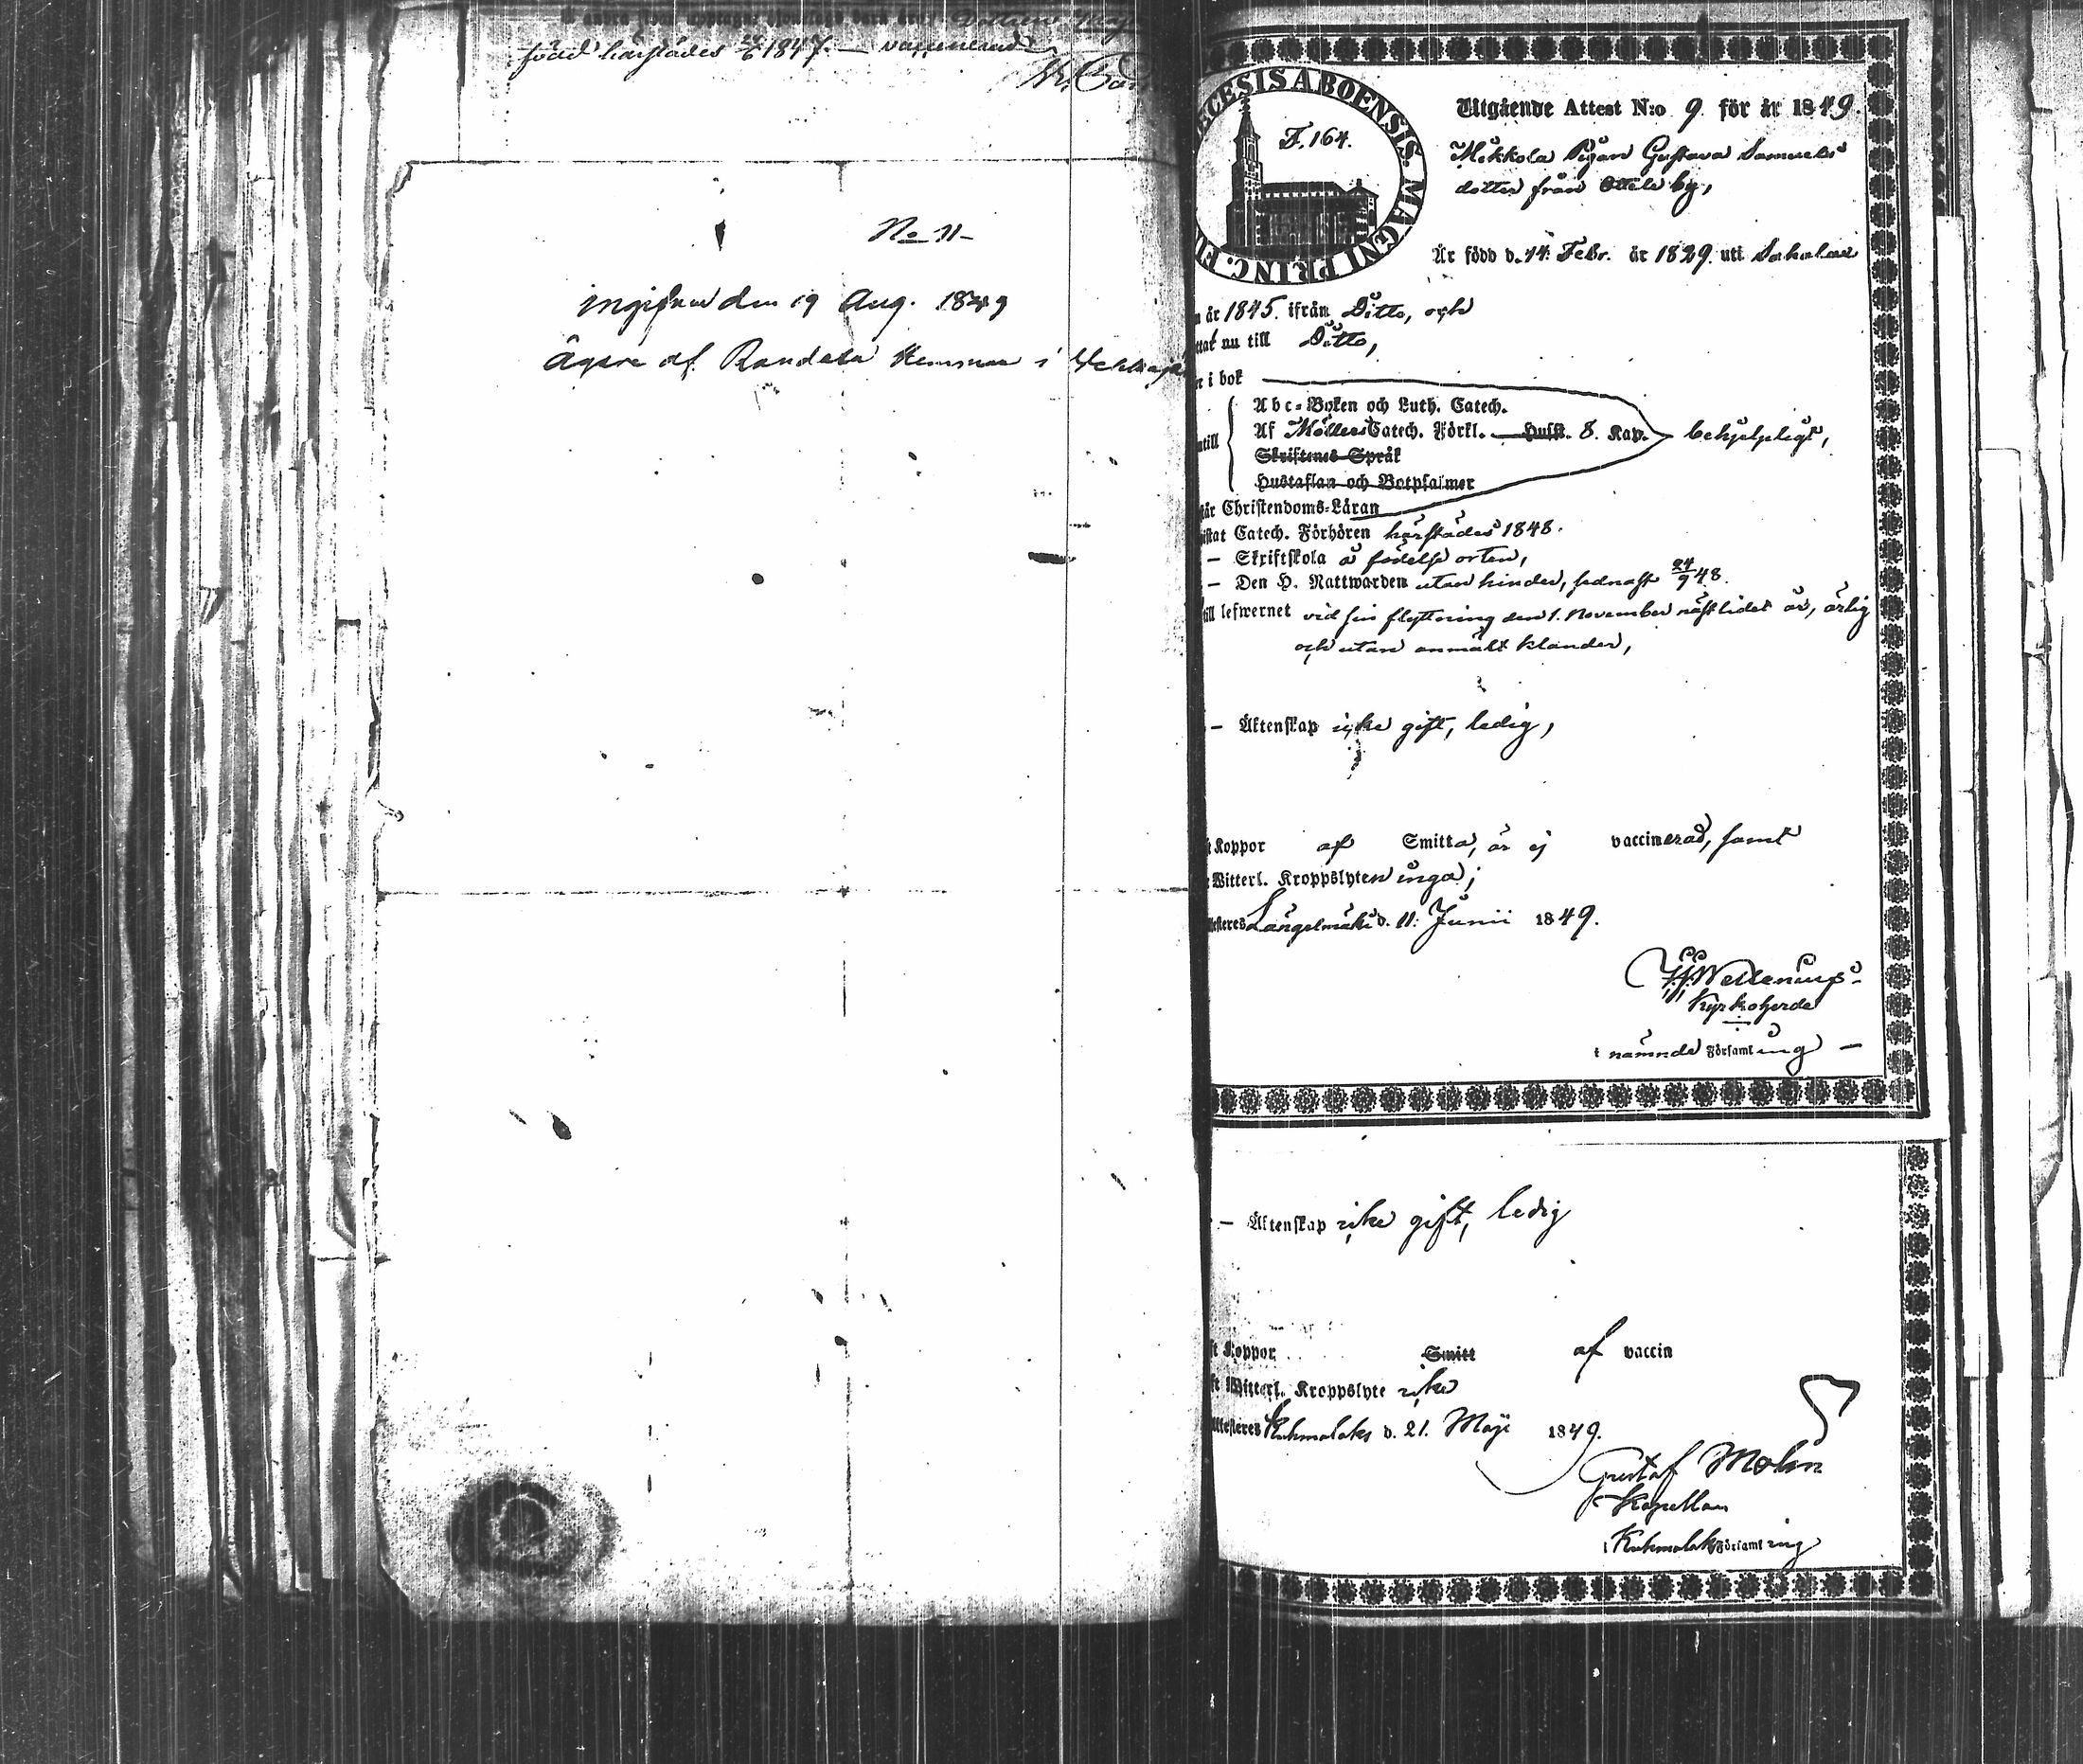 född härstädes 1847. — vaccinerad
No 11-
ingifven den 19 Aug. 1849
Ägare af Randala Hemman i
ECESIS ABOENSIS. MAGNI PRINC. FI
F. 164.
Utgående Attest N:o 9 för år 1849.
Mikkola Pigan Gustava Samuels
dotter från Attila by,
Är född d. 14 Febr. år 1829. uti Sahalax
år 1845. ifrån Ditto, och
nu till Ditto,
i bok
Abc-Boken och Luth. Catech.
Af Möllers Catech. Förkl. Huff. 8. Kap. behjelpligt,
Skriftenes Språk
Hustaflan och Botpsalmer
Christendoms-Läran
Catech. Förhören härstädes 1848.
— Skriftskola å födelse orten,
— Den H. Nattwarden utan hinder, sednast 24/9 48.
till lefwernet vid sin flyttning den 1. November nästlidet år, ärlig
och utan anmält klander,
— Äktenskap icke gift, ledig,
Koppor af Smitta, är ej vaccinerad, samt
Witterl. Kroppslyten inga;
Längelmäki d. 11: Junii 1849.
Kyrkoherde
i nämnde Församling —
— Äktenskap icke gift, ledig
Koppor Smitt af vaccin
Witterl. Kroppslyte icke
Attesteres Kuhmalaks d. 21. Maji 1849.
Gustaf Molin
Kapellan
i Kuhmalaks Församling